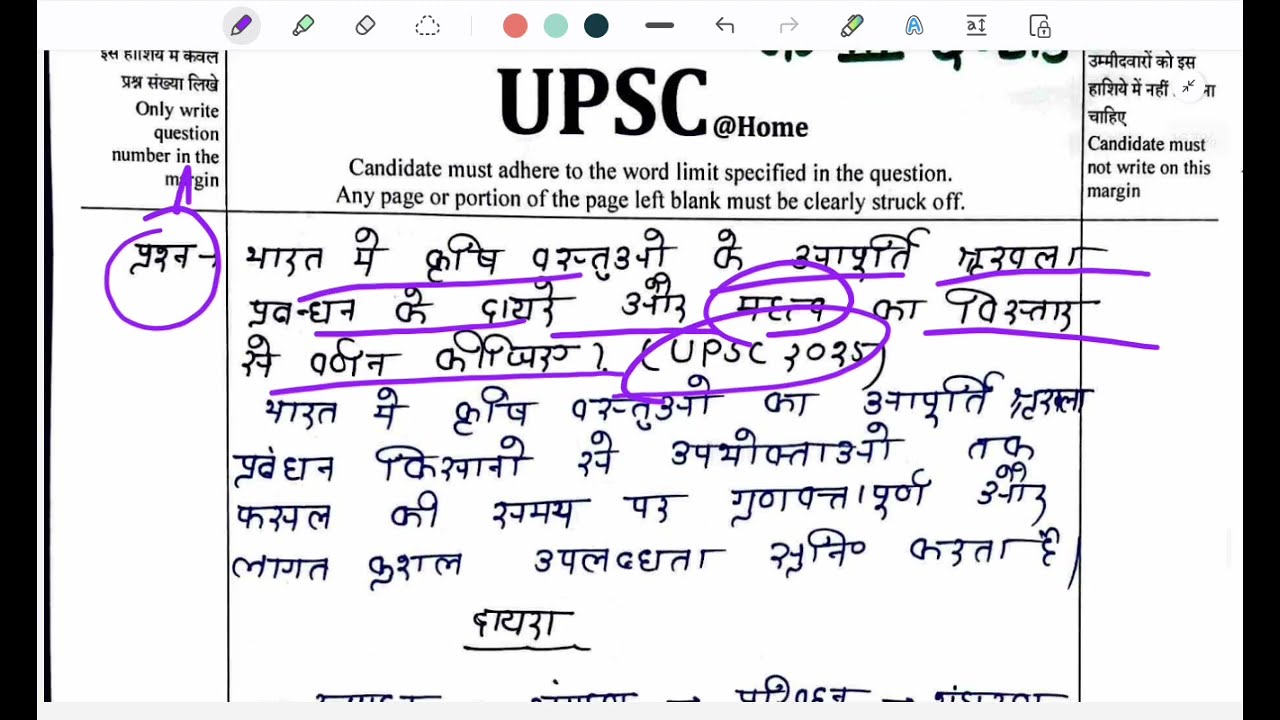 इस हाशिये में केवल
प्रश्न संख्या लिखे
Only write
question
number in the
margin
UPSC @Home
Candidate must adhere to the word limit specified in the question.
Any page or portion of the page left blank must be clearly struck off.
उम्मीदवारों को इस
हाशिये में नहीं
चाहिए
Candidate must
not write on this
margin
प्रश्न → भारत मे कृषि वस्तुओ के आपूर्ति श्रृखला
प्रबन्धन के दायरे और महत्व का विस्तार
से वर्णन कीजिए? (UPSC २०२५)
भारत मे कृषि वस्तुओ का आपूर्ति श्रृखला
प्रबंधन किसानो से उपभोक्ताओ तक
फसल की समय पर गुणवत्तापूर्ण और
लागत कुशल उपलब्धता सुनि॰ करता है।
दायरा
→ परिवहन →